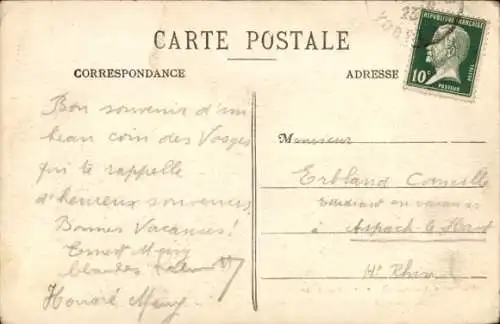 CARTE POSTALE
CORRESPONDANCE
ADRESSE
RÉPUBLIQUE FRANÇAISE
10c
POSTES
PASTEUR
Bon souvenir d'un
beau coin des Vosges
qui te rappelle
d'heureux souvenirs.
Bonnes Vacances!
Ernest
Honoré
Monsieur
Erbland Camille
Etudiant en vacances
à Aspach-le-Haut
Ht Rhin